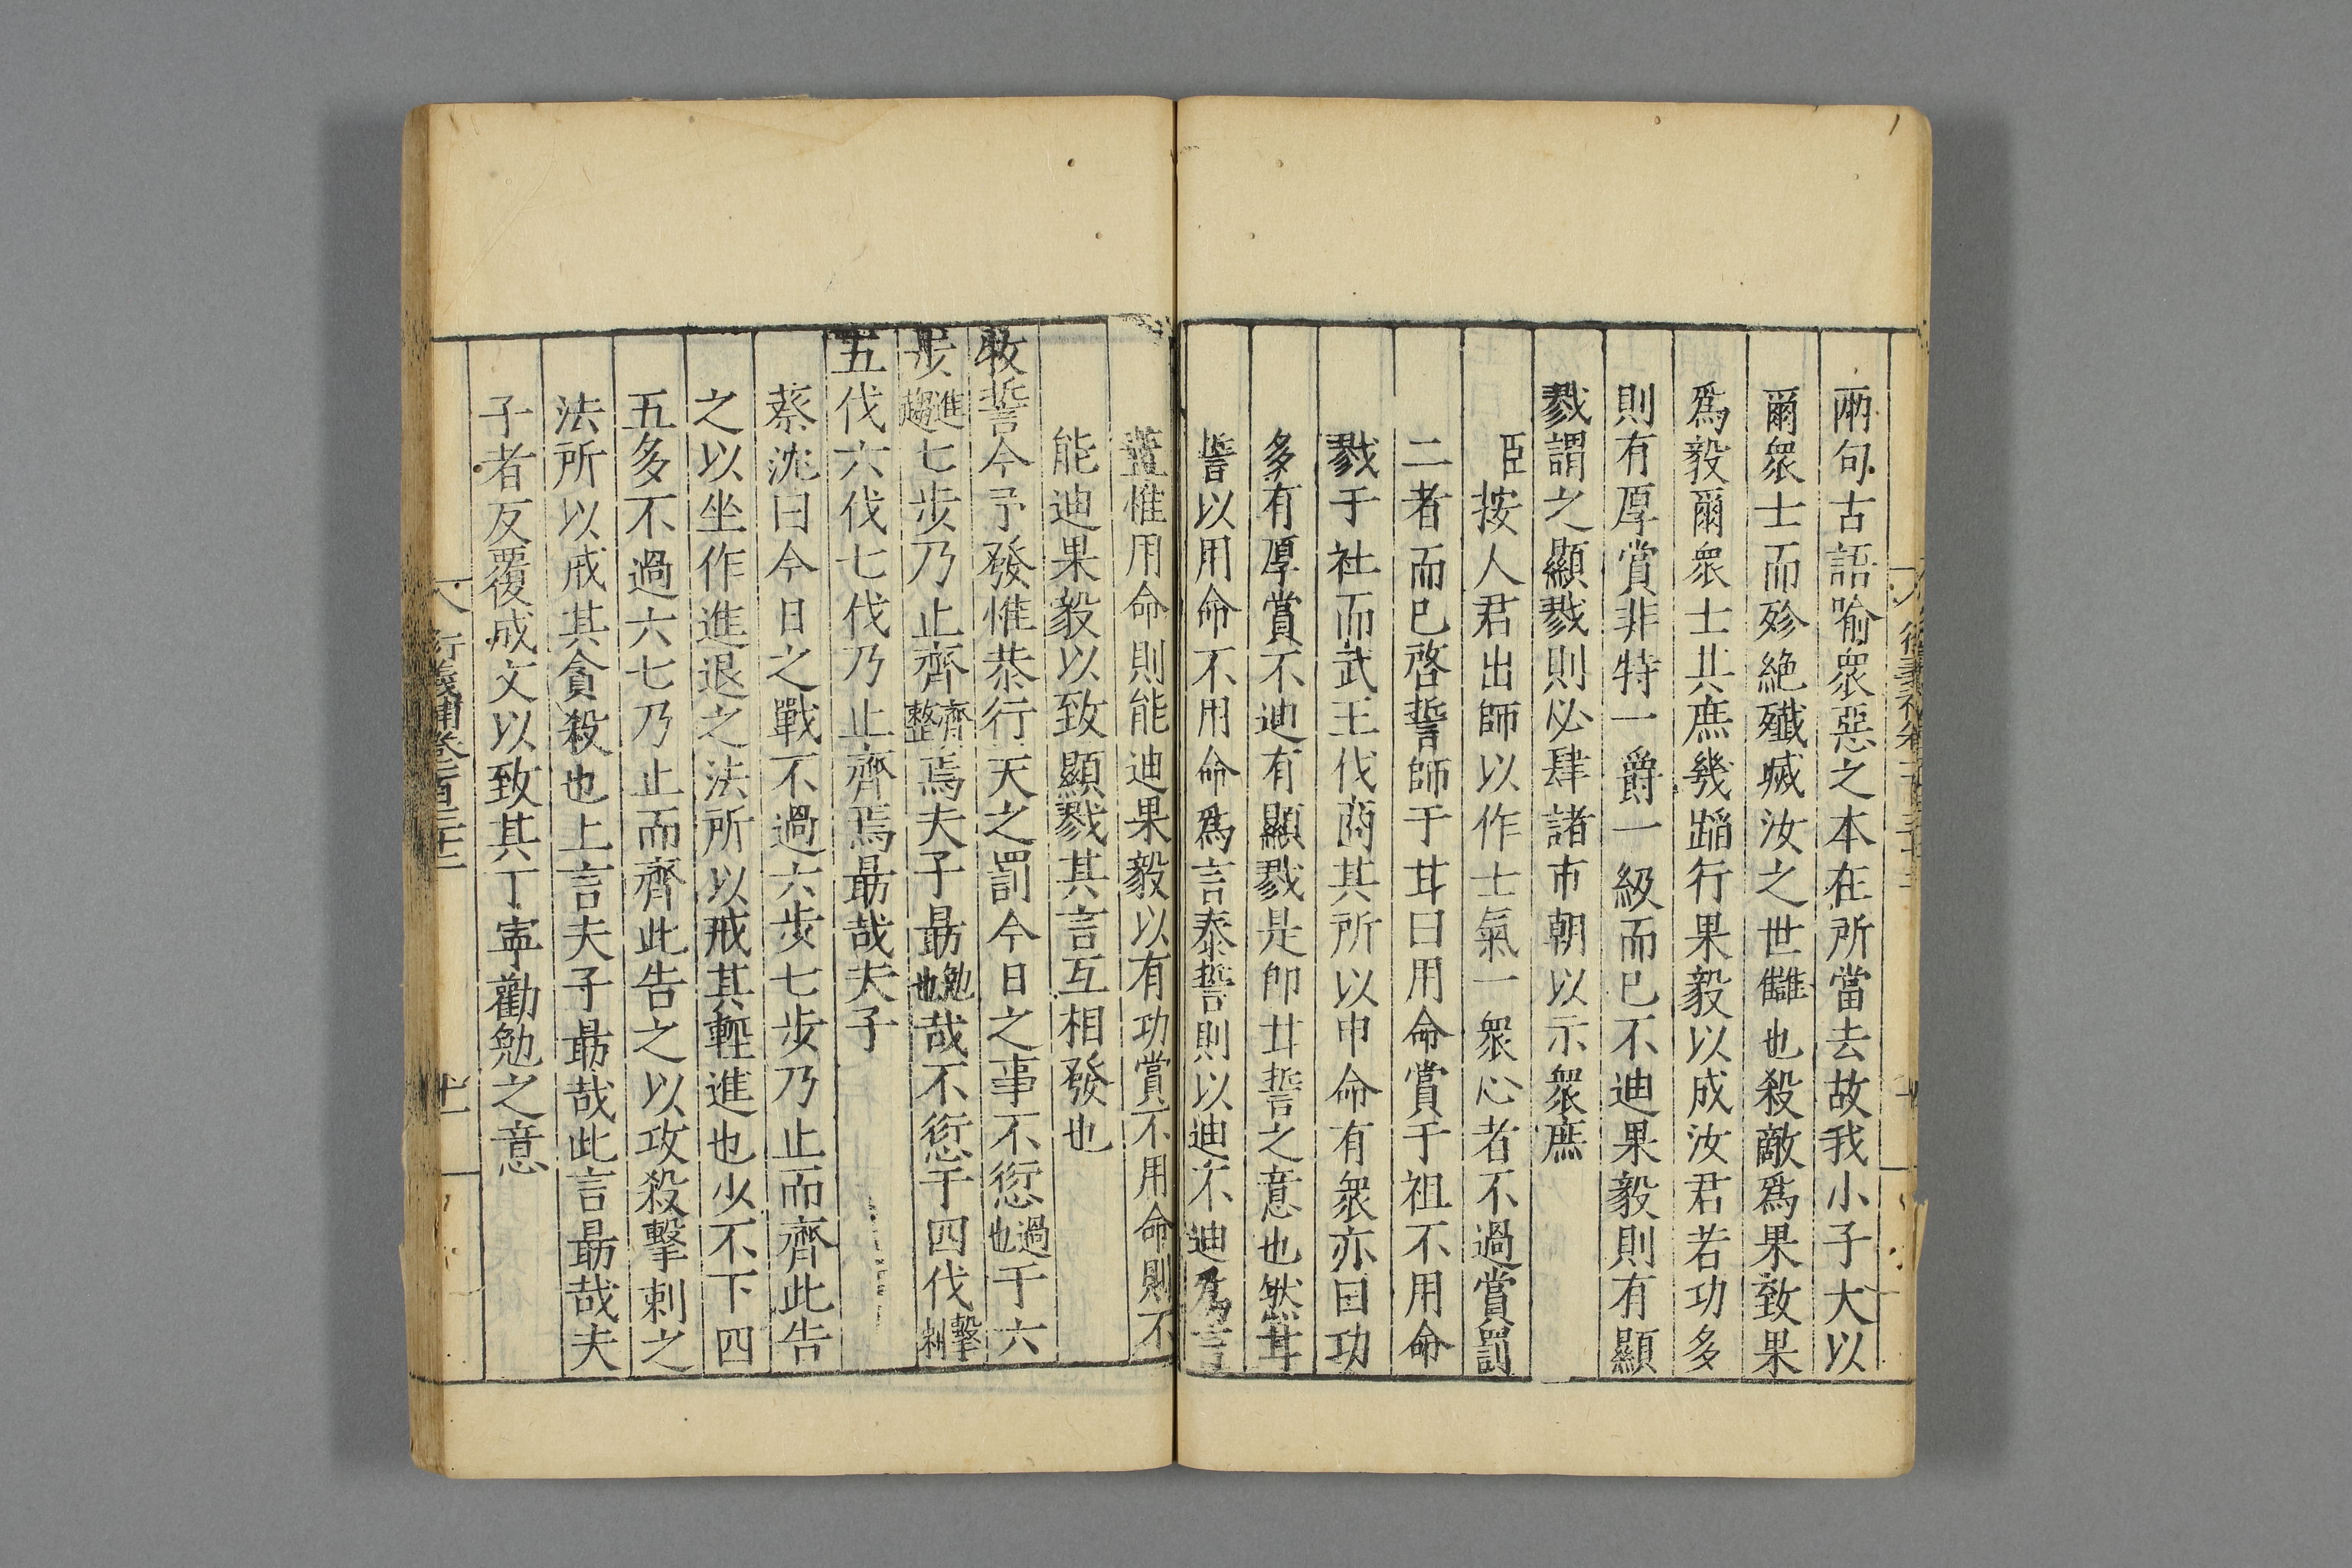 兩句古語喻衆惡之本在所當去故我小子大以
爾衆士而殄絶殲㓕汝之世讎也殺敵爲果致果
爲毅爾衆士其庶幾蹈行果毅以成汝君若功多
則有厚賞非特一爵一級而已不迪果毅則有顯
戮謂之顯戮則必肆諸市朝以示衆庶
臣按人君出師以作士氣一衆心者不過賞罰
二者而已啓誓師于甘曰用命賞于祖不用命
戮于社而武王伐商其所以申命有衆亦曰功
多有厚賞不迪有顯戮是卽甘誓之意也然甘
誓以用命不用命爲言泰誓則以迪不迪爲言
葢惟用命則能迪果毅以有功賞不用命則不
能迪果毅以致顯戮其言互相發也
牧誓今予發惟恭行天之罰今日之事不愆過也于六
步進趨七步乃止齊齊整焉夫子勗勉也哉不愆于四伐擊刺
五伐六伐七伐乃止齊焉勗哉夫子
蔡沈曰今日之戰不過六步七步乃止而齊此告
之以坐作進退之法所以戒其輕進也少不下四
五多不過六七乃止而齊此告之以攻殺擊刺之
法所以戒其貪殺也上言夫子勗哉此言勗哉夫
子者反覆成文以致其丁寧勸勉之意
衍義補卷一百三十三
十一